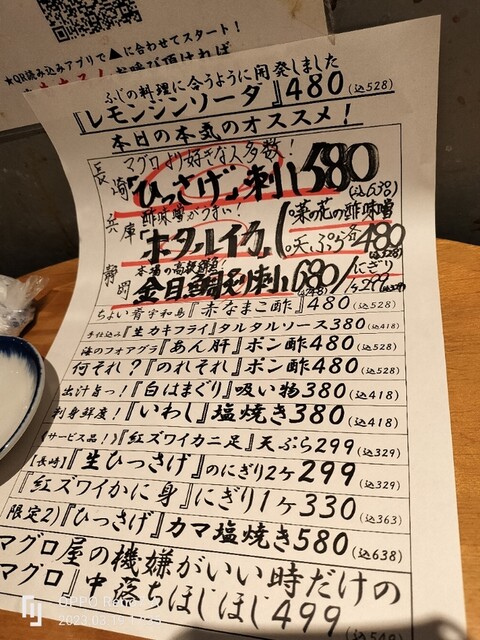 ★QR読み込みアプリで▲に合わせてスタート!
ふじの料理に合うように開発しました
『レモンジンソーダ』480(込528)
本日の本気のオススメ!
マグロより好きな人多数!
長崎「ひっさげ」刺し580(込638)
酢味噌がうまい!
兵庫「ホタルイカ」(○菜の花の酢味噌
○天ぷら各480
本場の高級鯛魚!
静岡 金目鯛利刺し680/にぎり
2ヶ299
ちょい青宇和島『赤なまこ酢』480(込528)
手仕込み『生カキフライ』タルタルソース380(込418)
海のフォアグラ『あん肝』ポン酢480(込528)
何それ?『のれそれ』ポン酢480(込528)
出汁旨っ!『白はまぐり』吸い物380(込418)
刺身鮮度!『いわし』塩焼き380(込418)
サービス品!)『紅ズワイカニ足』天ぷら299(込329)
【長崎】『生ひっさげ』のにぎり2ヶ299(込329)
『紅ズワイかに身』にぎり1ヶ330(込363)
限定2)『ひっさげ』カマ塩焼き580(込638)
マグロ屋の機嫌がいい時だけの
マグロ『中落ちほじほじ499
OPPO Reno